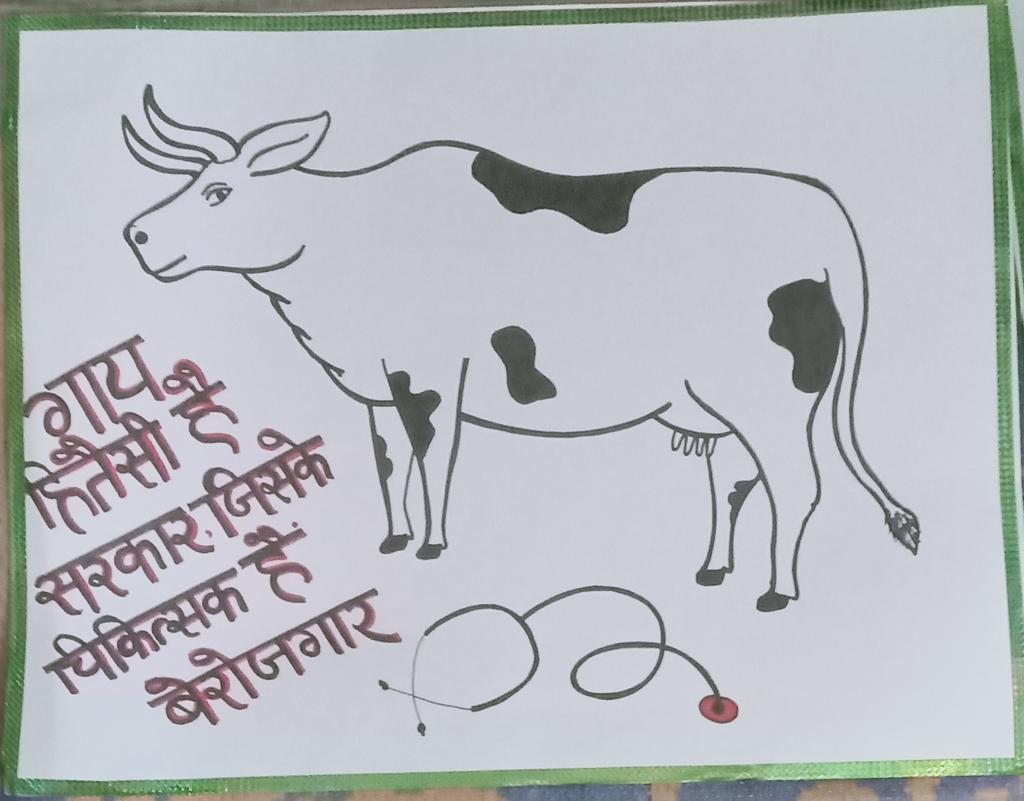 गाय
हितैसी है
सरकार. जिसके
चिकित्सक हैं
बेरोजगार